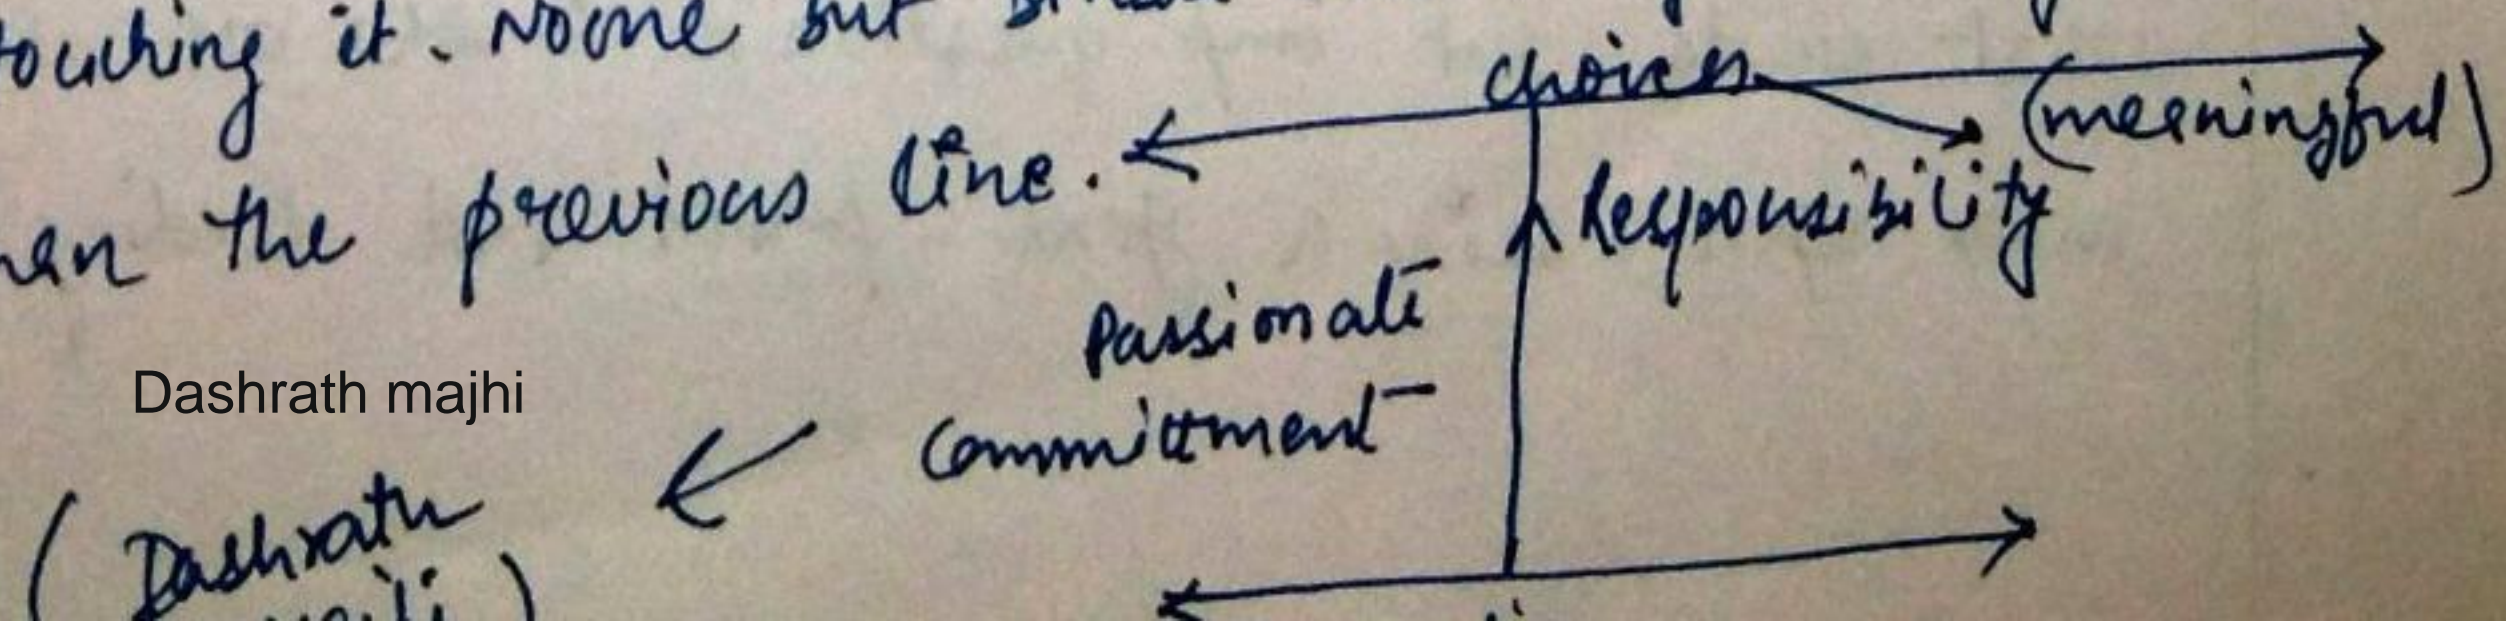 touching it. Noone but
choices
(meaningful)
the previous line.
Responsibility
Passionate
Committment
Dashrath majhi
(Dashrath